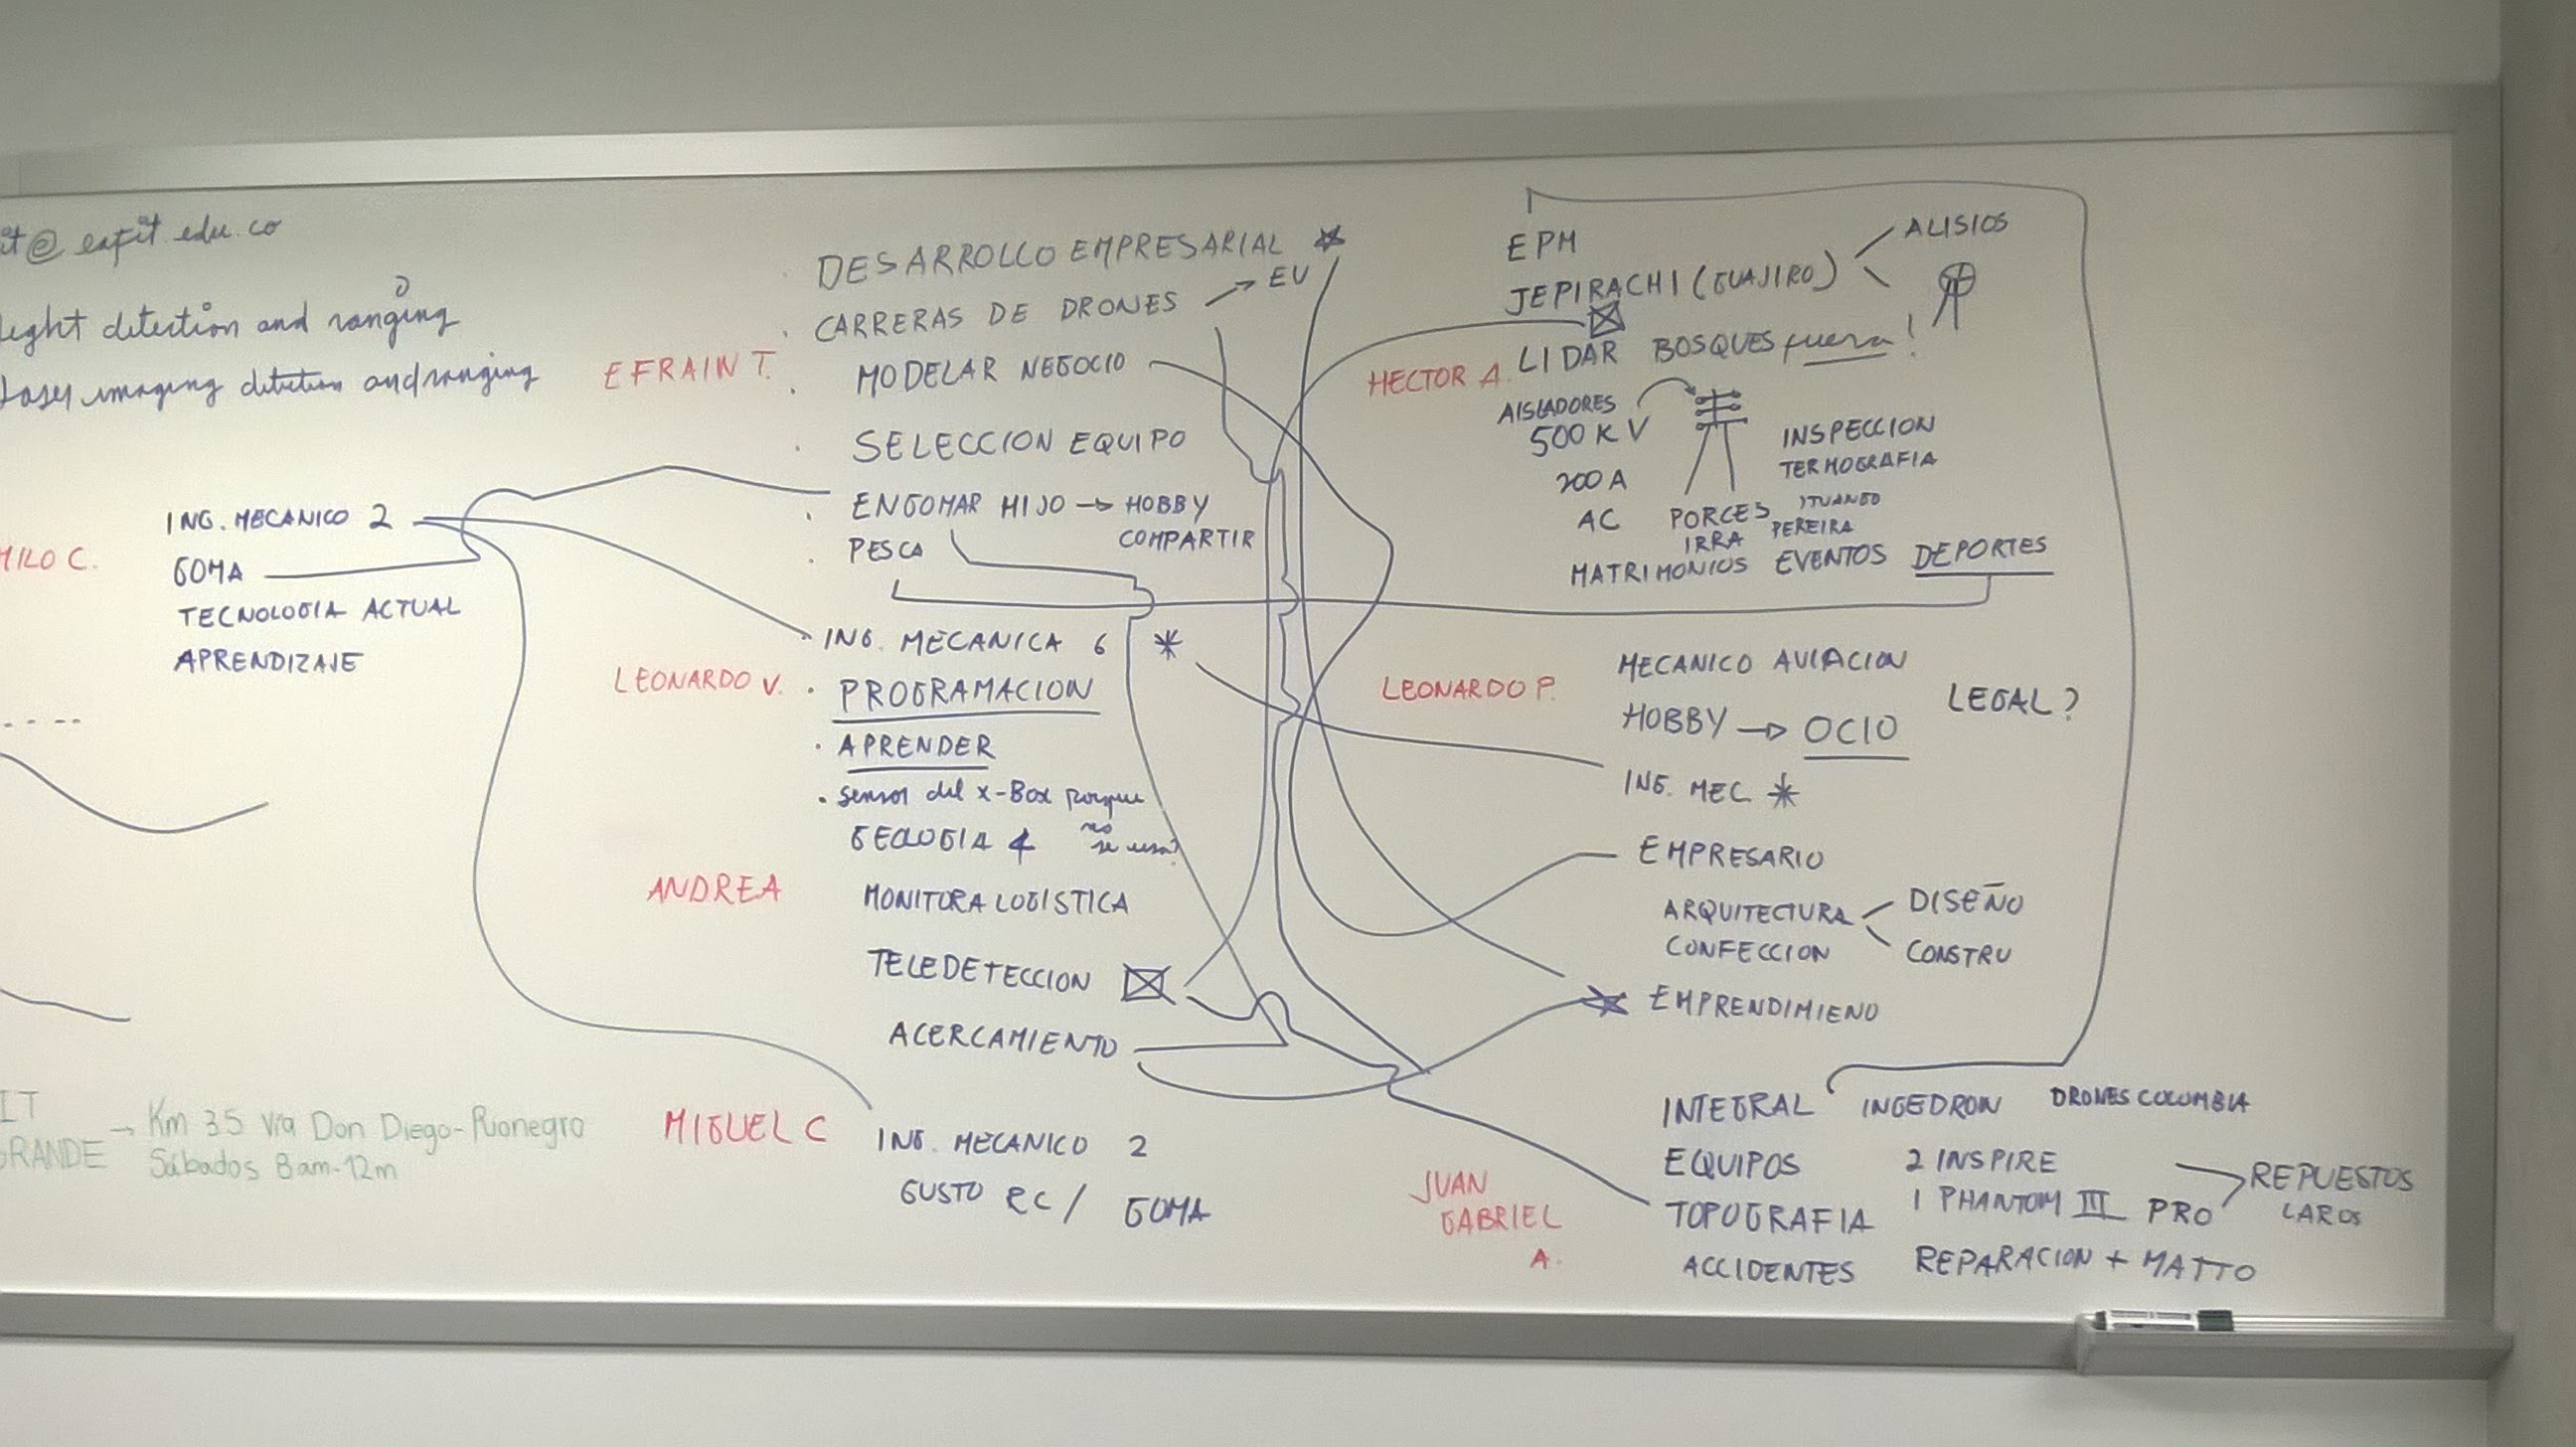 it@eafit.edu.co
Light detection and ranging
Laser imaging detection and ranging
MILO C.
ING. MECANICO 2
GOMA
TECNOLOGIA ACTUAL
APRENDIZAJE
IT
GRANDE → Km 3.5 vía Don Diego-Rionegro
Sábados 8am-12m
EFRAIN T.
DESARROLLO EMPRESARIAL
CARRERAS DE DRONES → EU
MODELAR NEGOCIO
SELECCION EQUIPO
ENGOMAR HIJO → HOBBY
COMPARTIR
PESCA
LEONARDO V.
ING. MECANICA 6 *
PROGRAMACION
APRENDER
sensor del X-Box porque
no
se usa?
ANDREA
GEOLOGIA 4
MONITORA LOGISTICA
TELEDETECCION
ACERCAMIENTO
MIGUEL C
ING. MECANICO 2
GUSTO RC / GOMA
HECTOR A.
EPM
JEPIRACHI (GUAJIRO)
ALISIOS
LIDAR BOSQUES fuera!
AISLADORES
500 KV
200 A
AC
INSPECCION
TERMOGRAFIA
PORCES ITUANGO
IRRA PEREIRA
MATRIMONIOS EVENTOS DEPORTES
LEONARDO P.
MECANICO AVIACION
HOBBY → OCIO
LEGAL?
ING. MEC *
EMPRESARIO
ARQUITECTURA DISEÑO
CONFECCION CONSTRU
EMPRENDIMIENO
JUAN
GABRIEL
A.
INTEGRAL INGEDRON DRONES COLOMBIA
EQUIPOS 2 INSPIRE
TOPOGRAFIA 1 PHANTOM III PRO
REPUESTOS
CAROS
ACCIDENTES REPARACION + MATTO